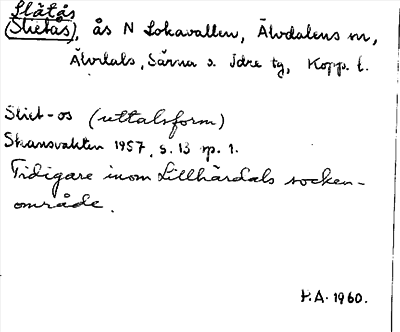 Slåtås
(Slietås), ås N Lokavallen, Älvdalens sn,
Älvdals, Särna o. Idre tg, Kopp. l.
Sliet-os (uttalsform)
Skansvakten 1957, s. 13 sp. 1.
Tidigare inom Lillhärdals socken-
område.
H.A. 1960.